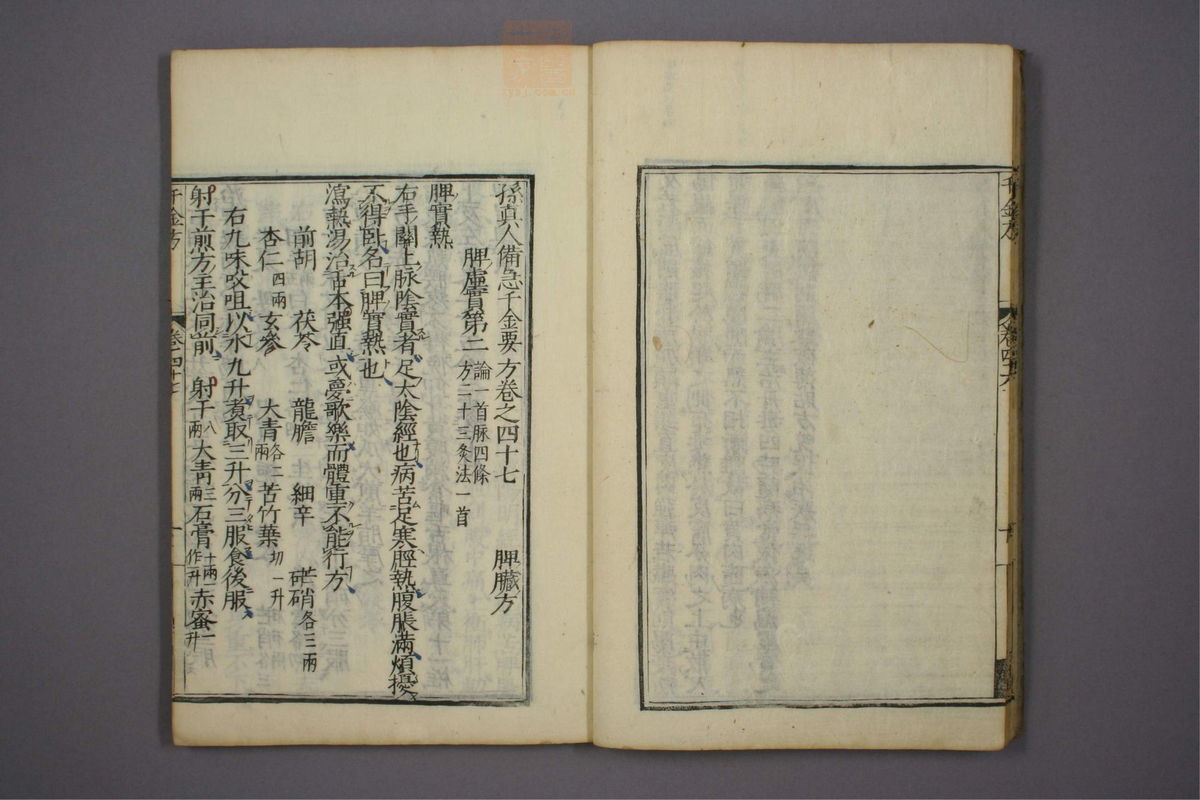 千金方
卷四十六
孫真人備急千金要方卷之四十七 脾臟方
脾虛實第二 論一首脉四條 方二十三灸法一首
脾實熱
右手關上脉陰實者足太陰經也病苦足寒脛熱腹脹滿煩擾
不得臥名曰脾實熱也
瀉熱湯治舌本强直或夢歌樂而體重不能行方
前胡 茯苓 龍膽 細辛 芒硝各三兩
杏仁四兩 玄參 大青各二兩 苦竹葉切一升
右九味㕮咀以水九升煑取三升分三服食後服
射干煎方主治同前 射干八兩 大青三兩 石膏十兩一作升 赤蜜一升
千金方
卷四十七